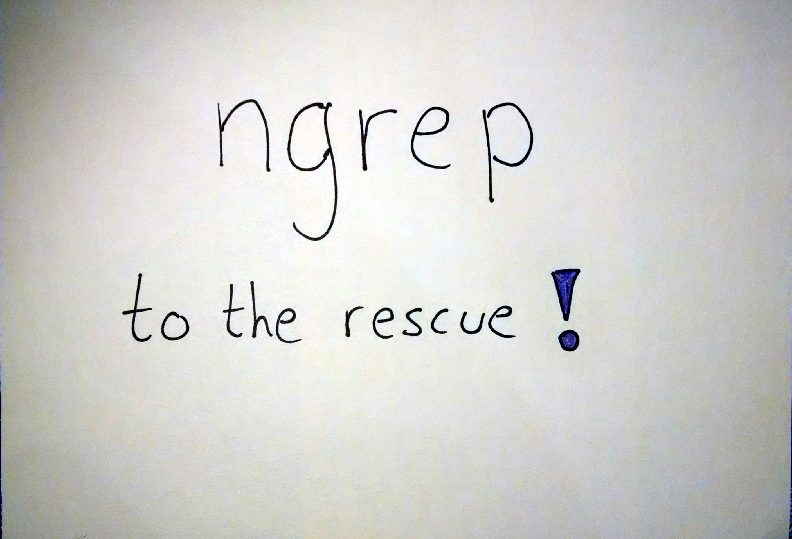 ngrep
to the rescue!